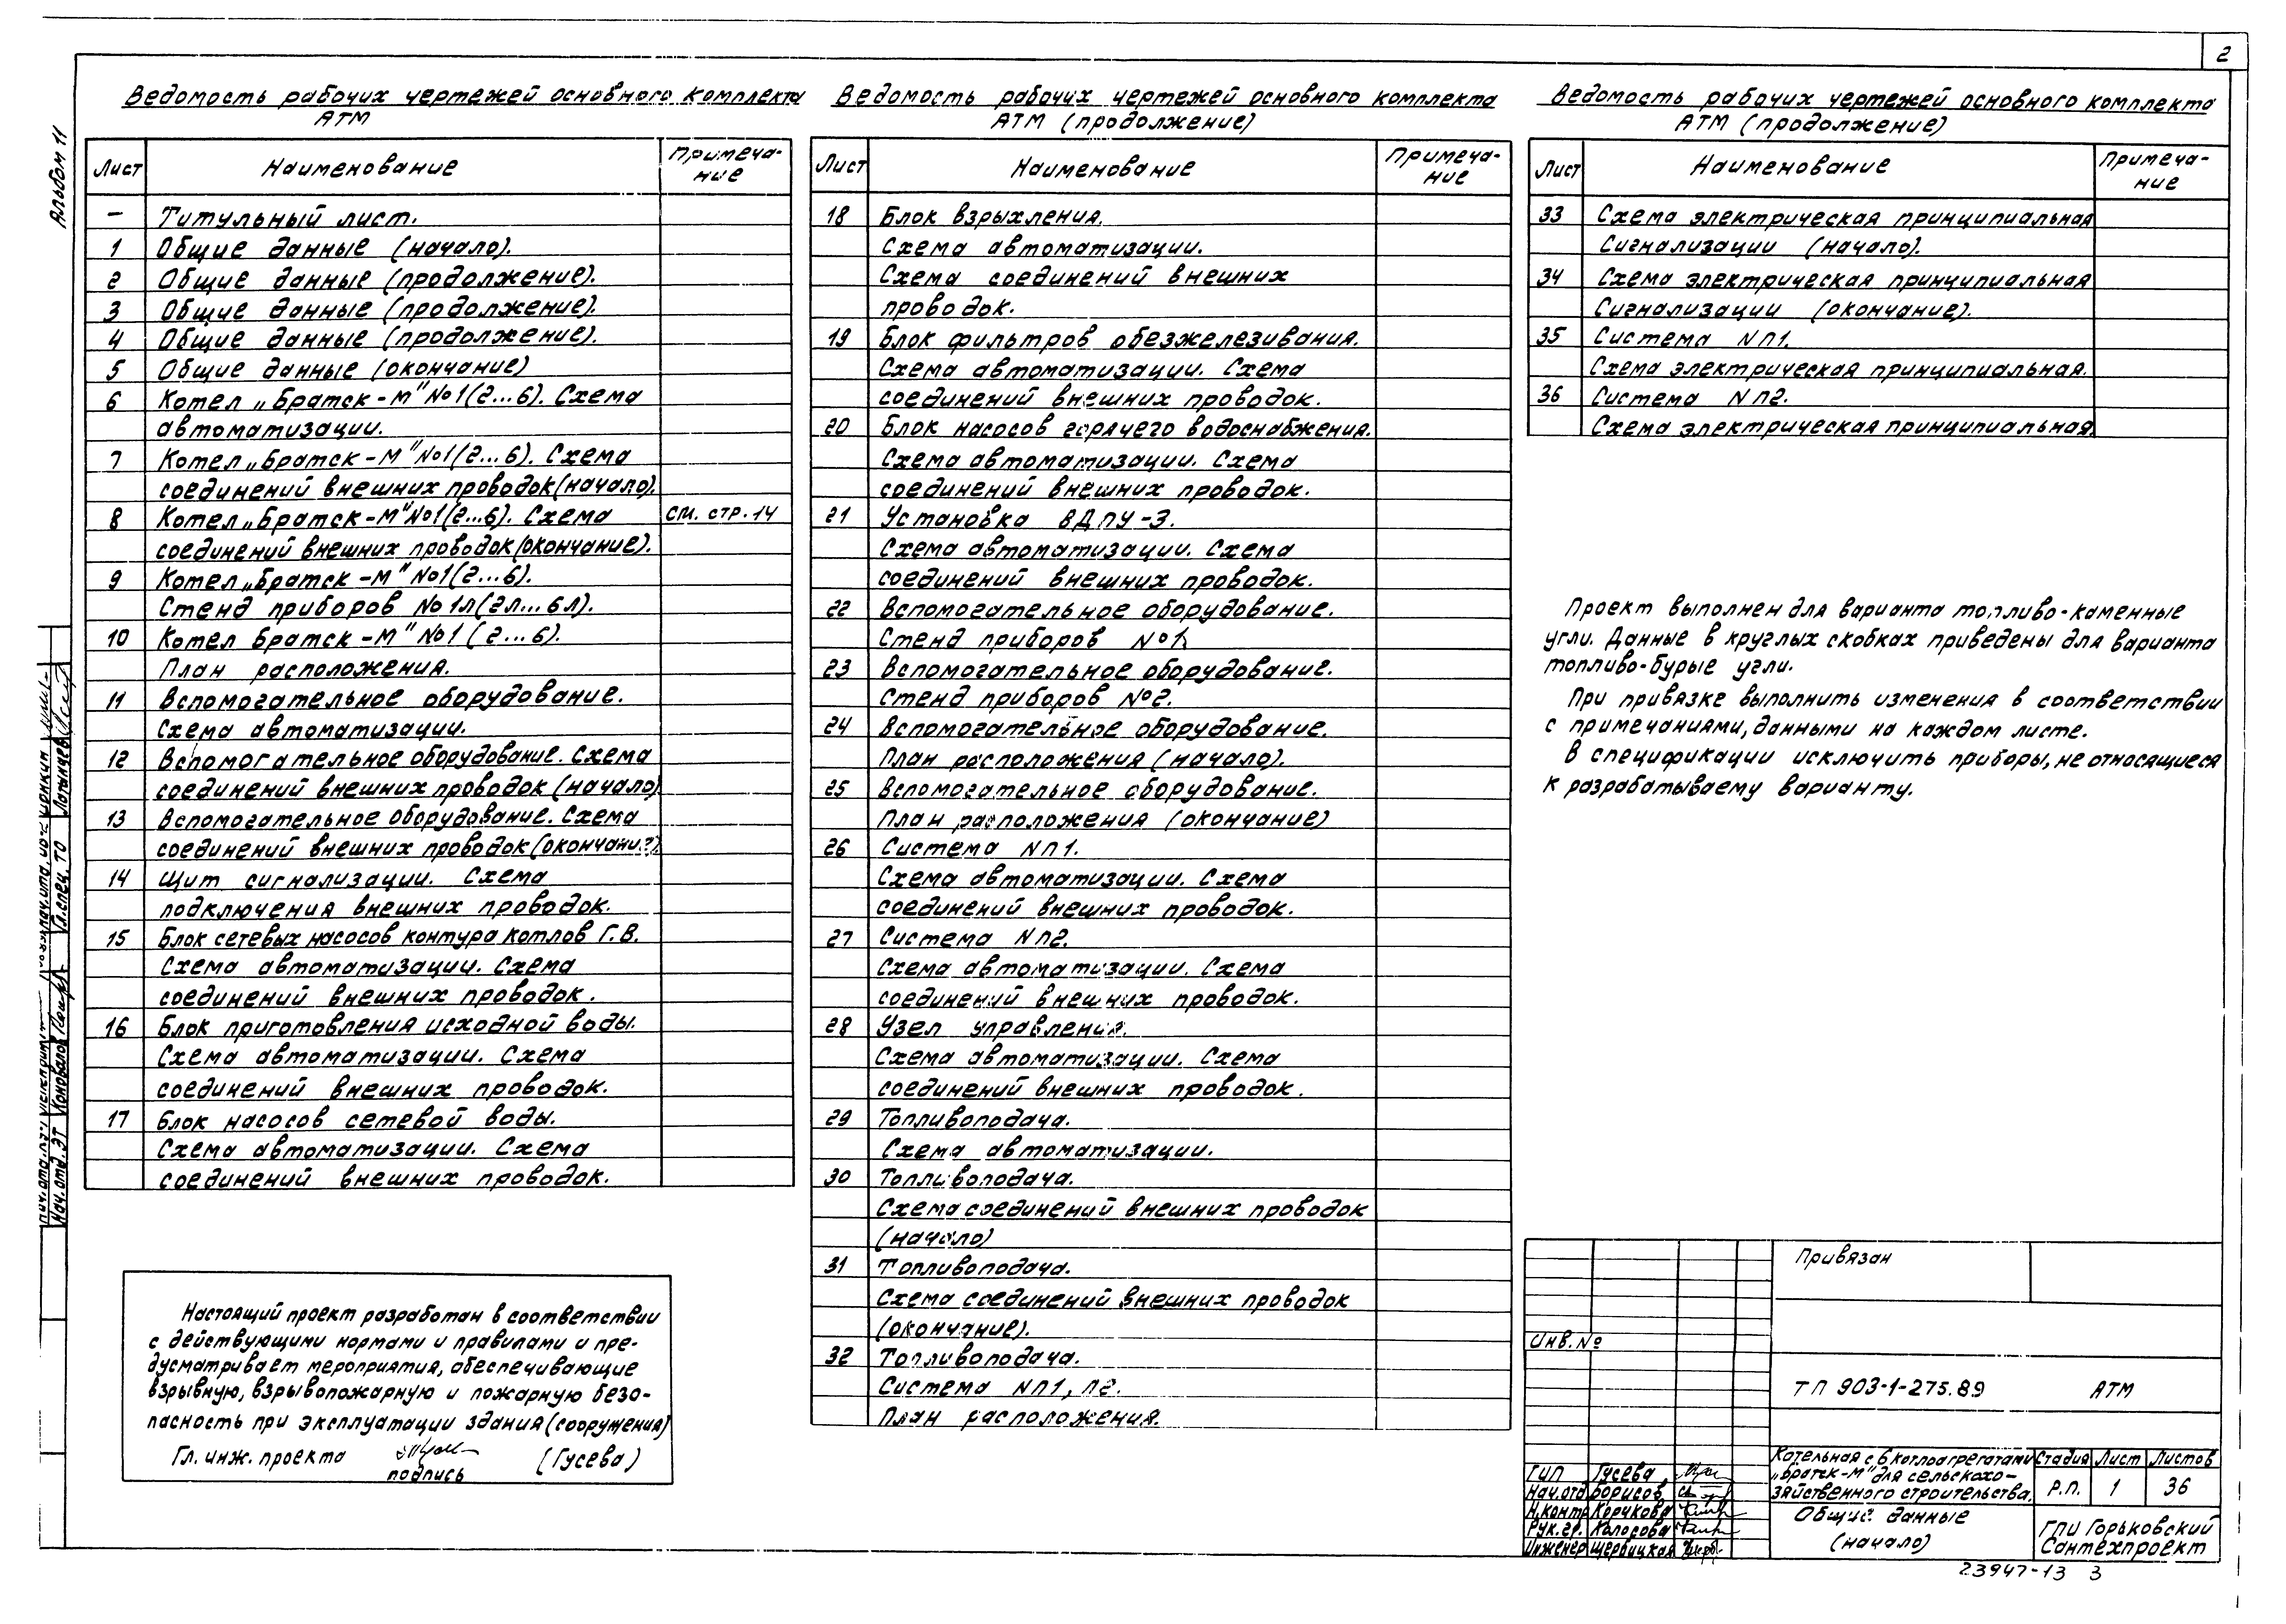 2
Альбом 11
Ведомость рабочих чертежей основного комплекта
АТМ
Лист Наименование Примеча-
ние
— Титульный лист.
1 Общие данные (начало).
2 Общие данные (продолжение).
3 Общие данные (продолжение).
4 Общие данные (продолжение).
5 Общие данные (окончание)
6 Котел „Братск-М" №1(2...6). Схема
автоматизации.
7 Котел „Братск-М" №1(2...6). Схема
соединений внешних проводок(начало).
8 Котел „Братск-М" №1(2...6). Схема см. стр.14
соединений внешних проводок(окончание).
9 Котел „Братск-М" №1(2...6).
Стенд приборов №1л(2л...6л).
10 Котел Братск-М" №1 (2...6).
План расположения.
11 Вспомогательное оборудование.
Схема автоматизации.
12 Вспомогательное оборудование. Схема
соединений внешних проводок (начало)
13 Вспомогательное оборудование. Схема
соединений внешних проводок(окончание).
14 Щит сигнализации. Схема
подключения внешних проводок.
15 Блок сетевых насосов контура котлов Г.В.
Схема автоматизации. Схема
соединений внешних проводок.
16 Блок приготовления исходной воды.
Схема автоматизации. Схема
соединений внешних проводок.
17 Блок насосов сетевой воды.
Схема автоматизации. Схема
соединений внешних проводок.
Настоящий проект разработан в соответствии
с действующими нормами и правилами и пре-
дусматривает мероприятия, обеспечивающие
взрывную, взрывопожарную и пожарную безо-
пасность при эксплуатации здания (сооружения)
Гл. инж. проекта (Гусева)
подпись
Ведомость рабочих чертежей основного комплекта
АТМ (продолжение)
Лист Наименование Примеча-
ние
18 Блок взрыхления.
Схема автоматизации.
Схема соединений внешних
проводок.
19 Блок фильтров обезжелезивания.
Схема автоматизации. Схема
соединений внешних проводок.
20 Блок насосов горячего водоснабжения.
Схема автоматизации. Схема
соединений внешних проводок.
21 Установка ВДПУ-3.
Схема автоматизации. Схема
соединений внешних проводок.
22 Вспомогательное оборудование.
Стенд приборов №1.
23 Вспомогательное оборудование.
Стенд приборов №2.
24 Вспомогательное оборудование.
План расположения (начало).
25 Вспомогательное оборудование.
План расположения (окончание)
26 Система NП1.
Схема автоматизации. Схема
соединений внешних проводок.
27 Система NП2.
Схема автоматизации. Схема
соединений внешних проводок.
28 Узел управления.
Схема автоматизации. Схема
соединений внешних проводок.
29 Топливоподача.
Схема автоматизации.
30 Топливоподача.
Схема соединений внешних проводок
(начало)
31 Топливоподача.
Схема соединений внешних проводок
(окончание).
32 Топливоподача.
Система NП1, П2.
План расположения.
Ведомость рабочих чертежей основного комплекта
АТМ (продолжение)
Лист Наименование Примеча-
ние
33 Схема электрическая принципиальная
Сигнализации (начало).
34 Схема электрическая принципиальная
Сигнализации (окончание).
35 Система NП1.
Схема электрическая принципиальная.
36 Система NП2.
Схема электрическая принципиальная.
Проект выполнен для варианта топливо-каменные
угли. Данные в круглых скобках приведены для варианта
топливо-бурые угли.
При привязке выполнить изменения в соответствии
с примечаниями, данными на каждом листе.
В спецификации исключить приборы, не относящиеся
к разрабатываему варианту.
Привязан
Инв.№
ТП 903-1-275.89 АТМ
Котельная с 6 котлоагрегатами
„Братск-М" для сельскохо-
зяйственного строительства.
Стадия Лист Листов
Р.П. 1 36
ГИП Гусева
Нач.отд Борисов
Н.контр Корчкова
Рук.гр. Колосова
Инженер Щербицкая
Общие данные
(начало)
ГПИ Горьковский
Сантехпроект
23947-13 3
Гл.спец. ТО Латычев
Нач.отд. ЭТ Коновалов